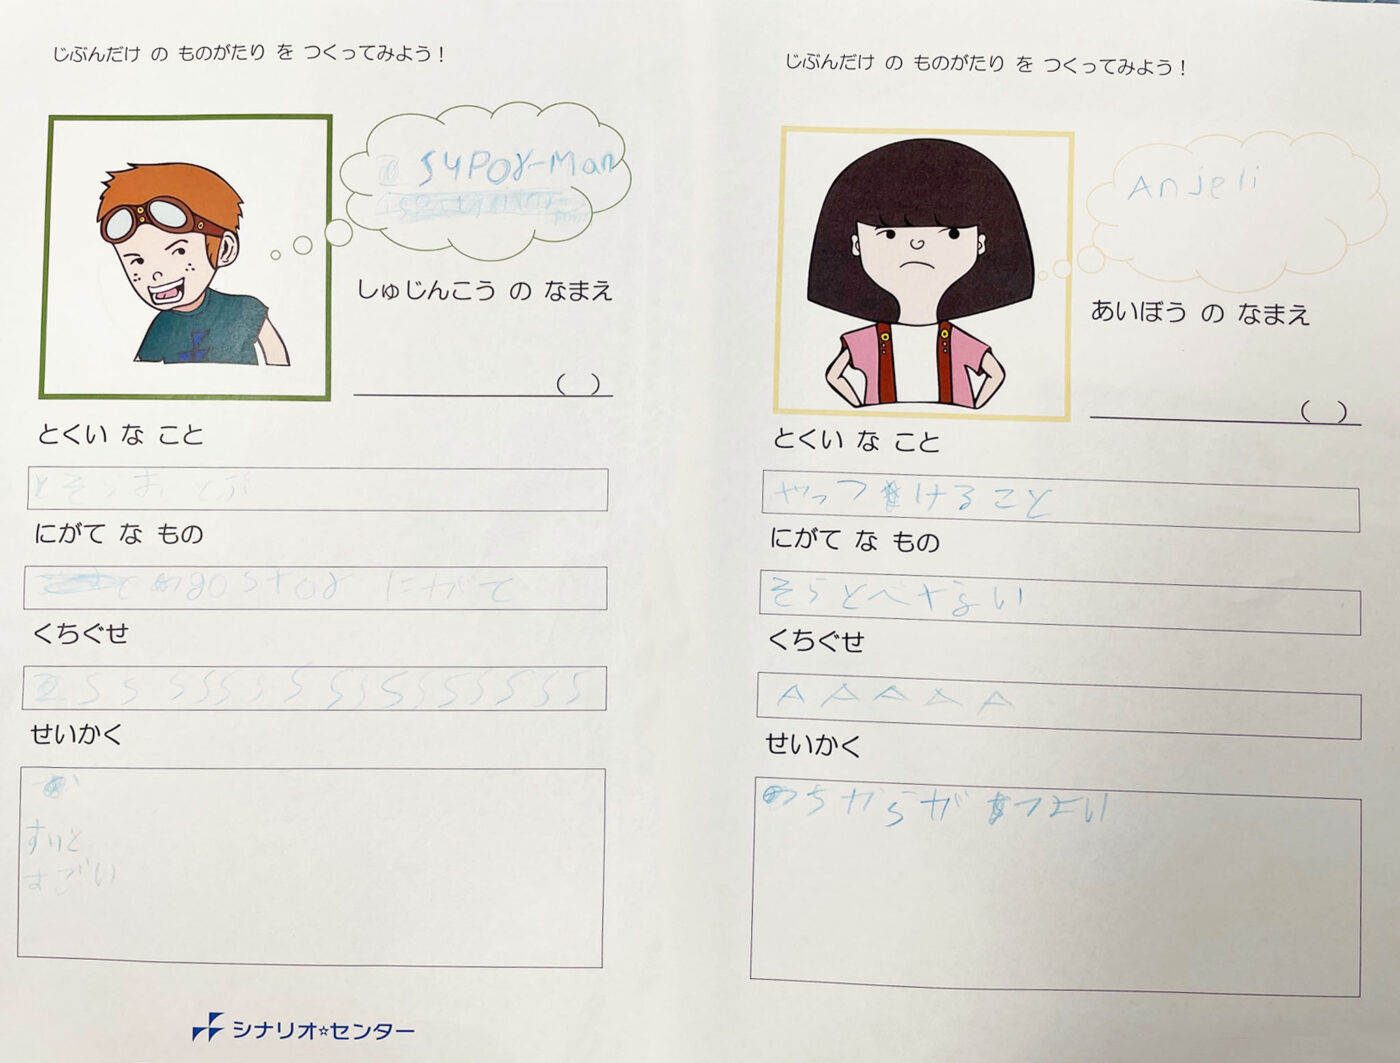 じぶんだけ の ものがたり を つくってみよう！
SUPOr-Man
しゅじんこう の なまえ
( )
とくい な こと
そらお とぶ
にがて な もの
gostor にがて
くちぐせ
S S S S S S S S S S S S S S S S
せいかく
すごい
シナリオ☆センター
じぶんだけ の ものがたり を つくってみよう！
Anjeli
あいぼう の なまえ
( )
とくい な こと
やっつけること
にがて な もの
そらとべなない
くちぐせ
A A A A A
せいかく
ちからがつよい